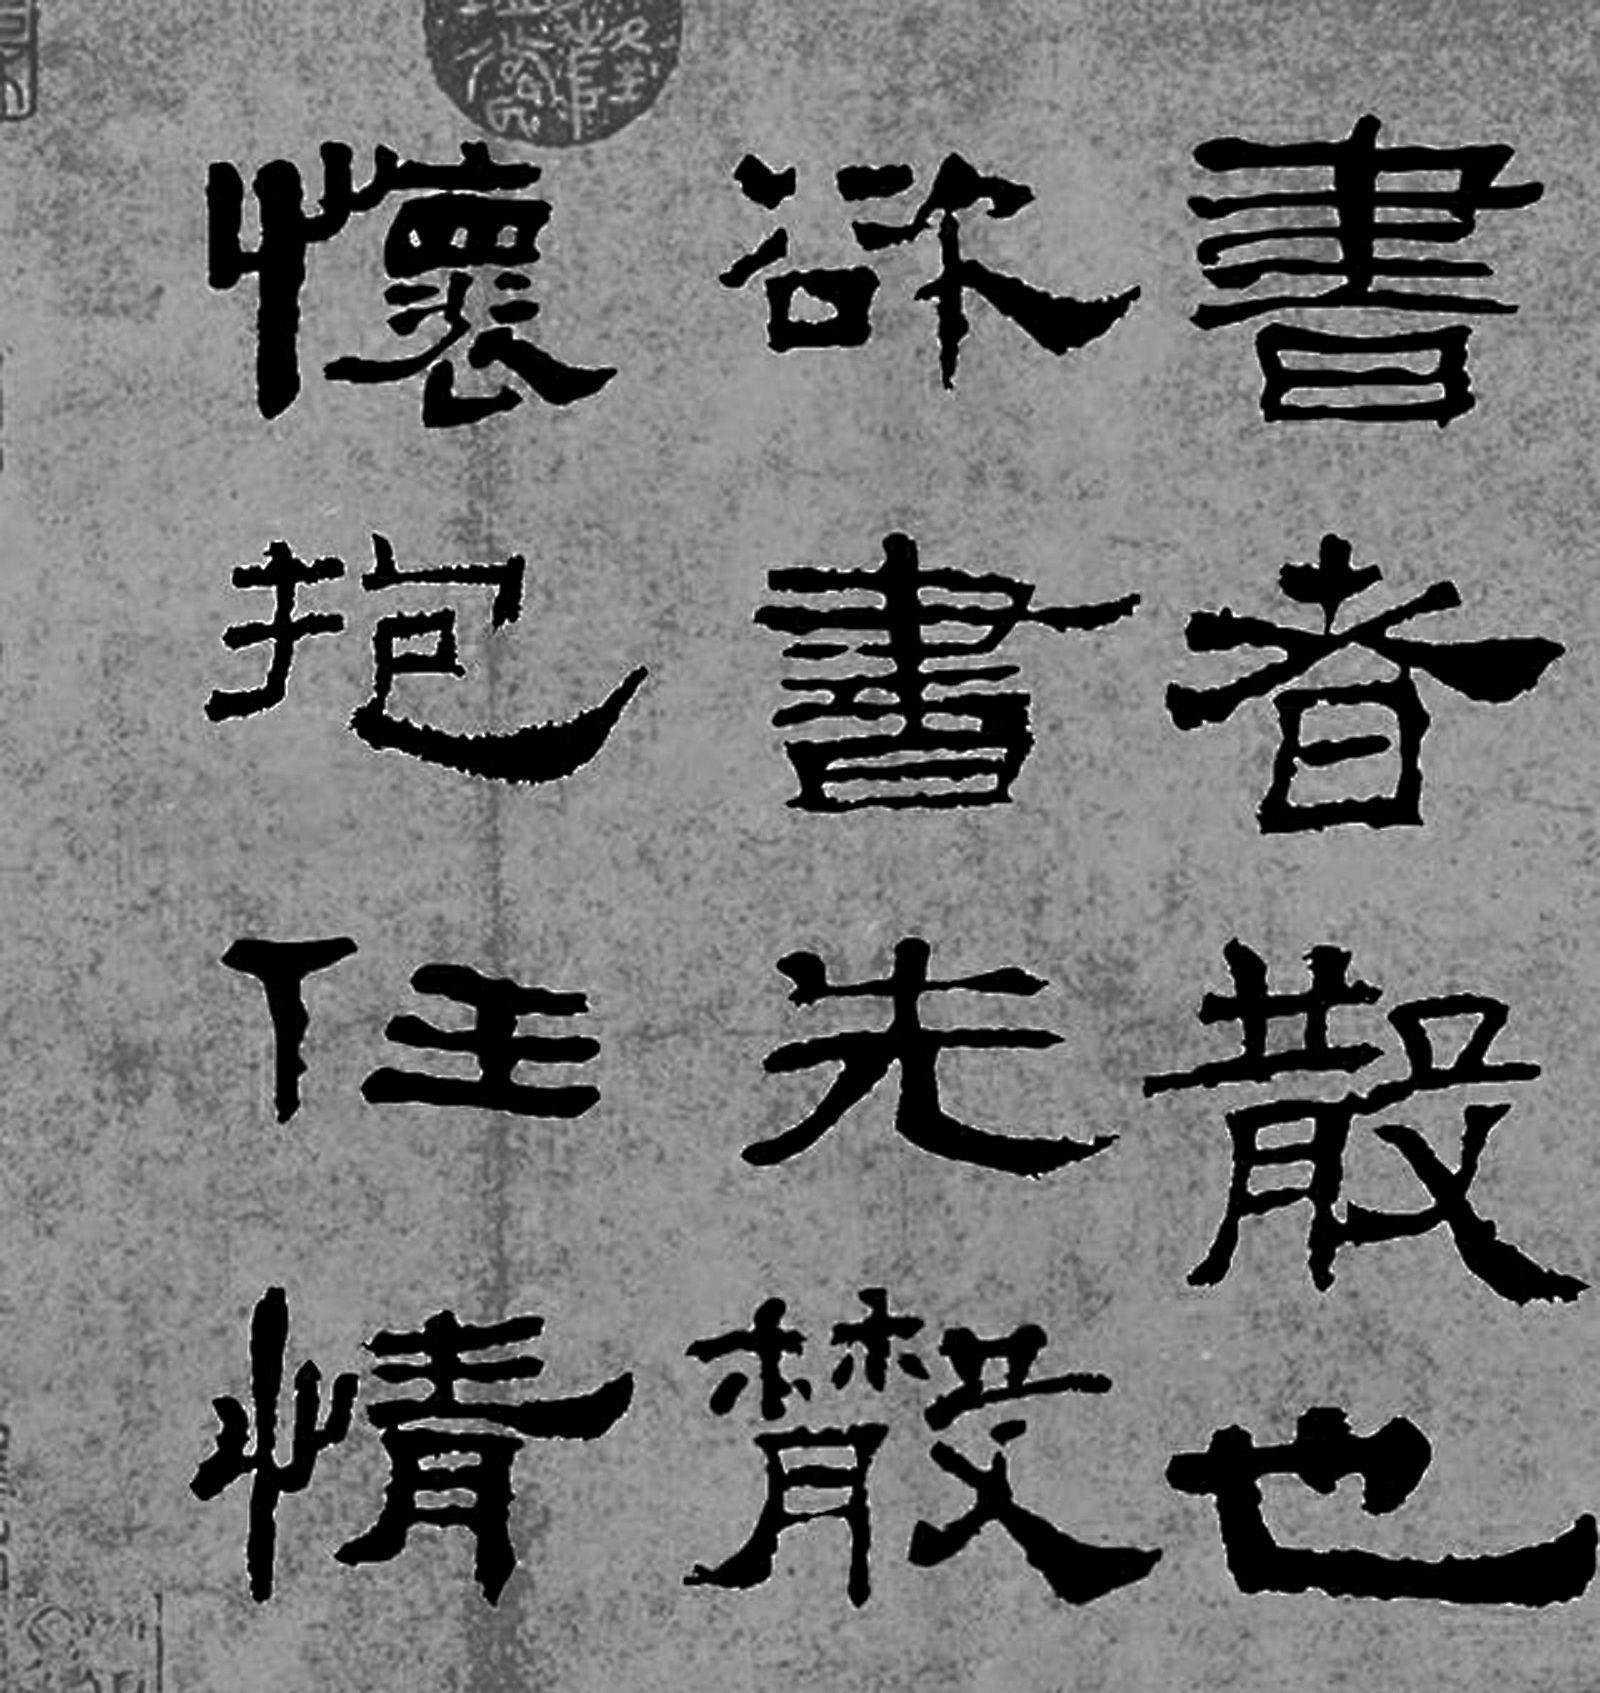 書者散也
欲書先散
懷抱任情